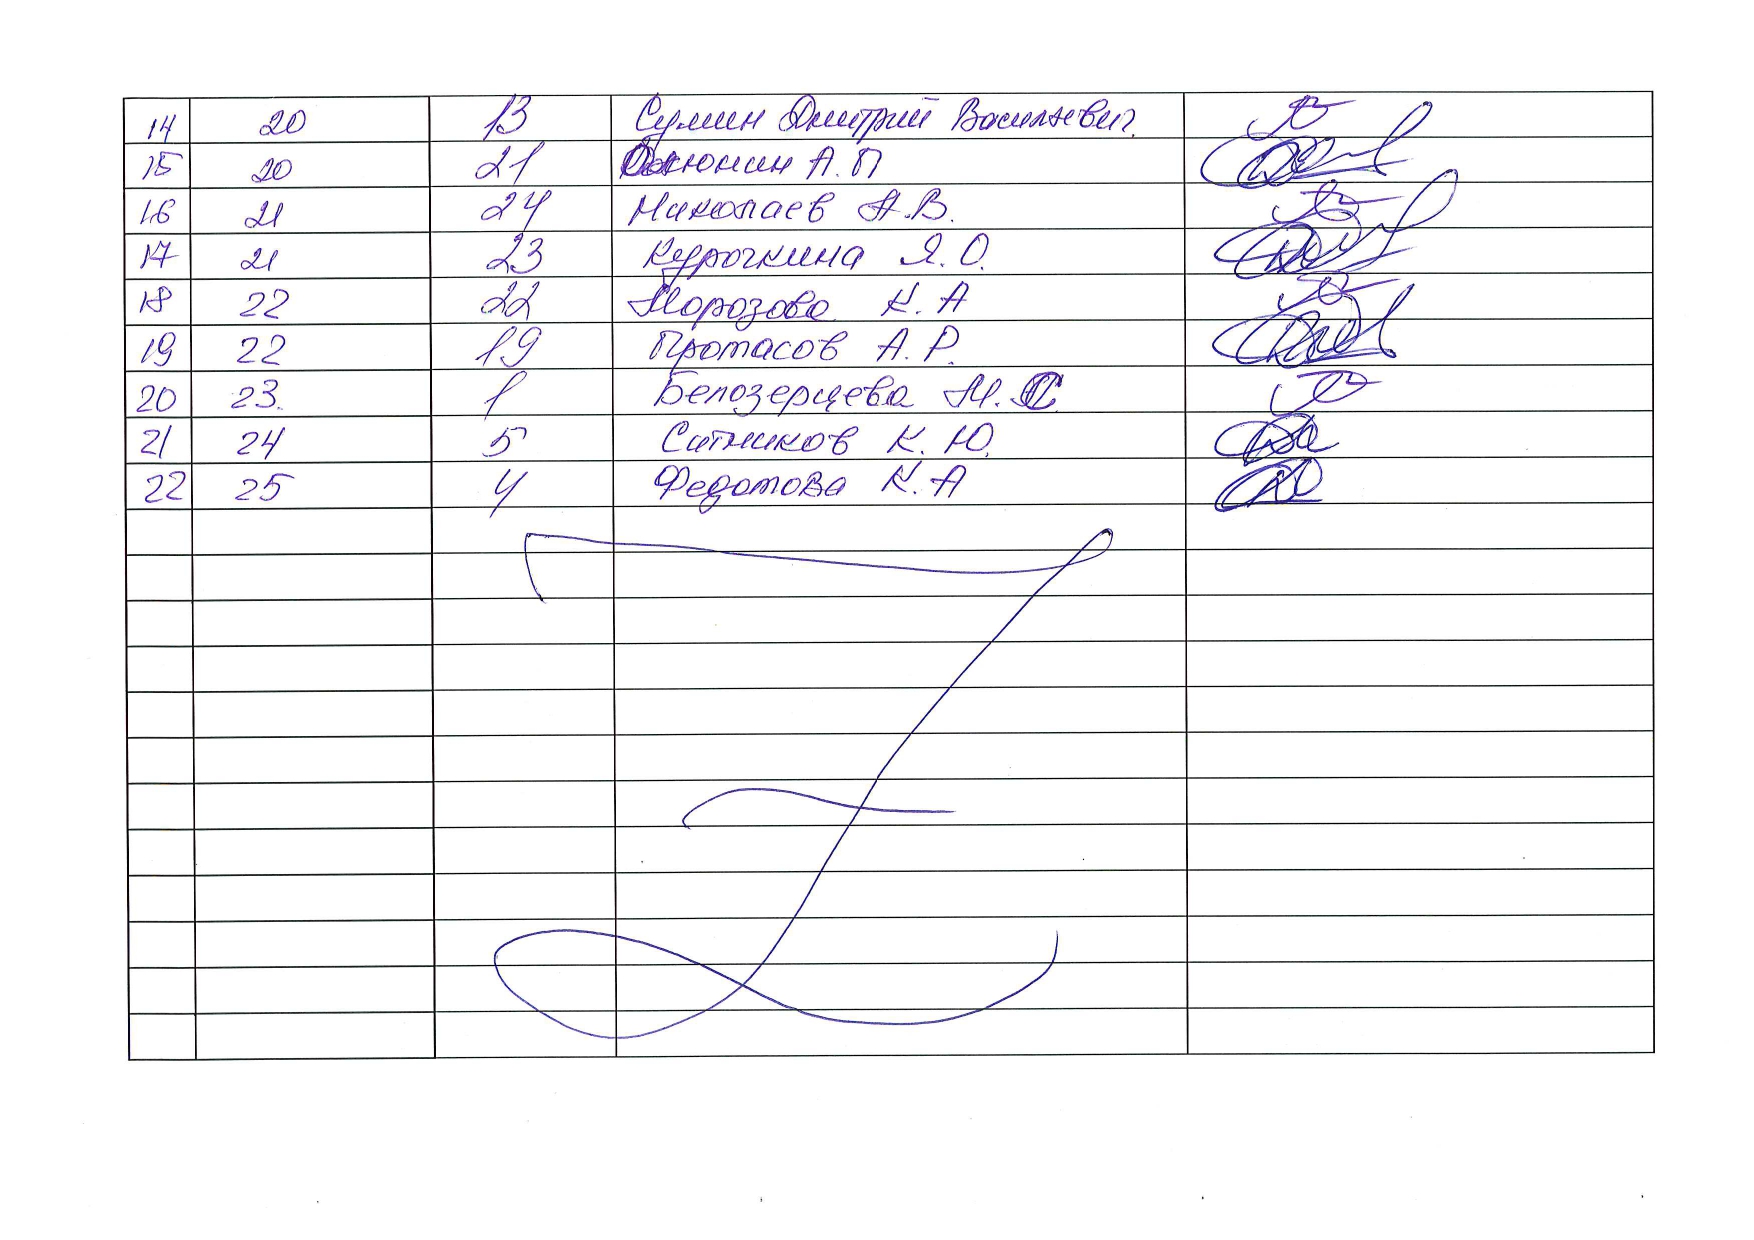 14 20 13 Сумин Дмитрий Васильевич
15 20 21 А.П
16 21 24 Николаев А.В.
17 21 23 Курочкина Я.О.
18 22 22 Морозова К.А
19 22 19 Протасов А.Р.
20 23. 1 Белозерцева М.С
21 24 5 Ситников К.Ю.
22 25 4 Федотова К.А